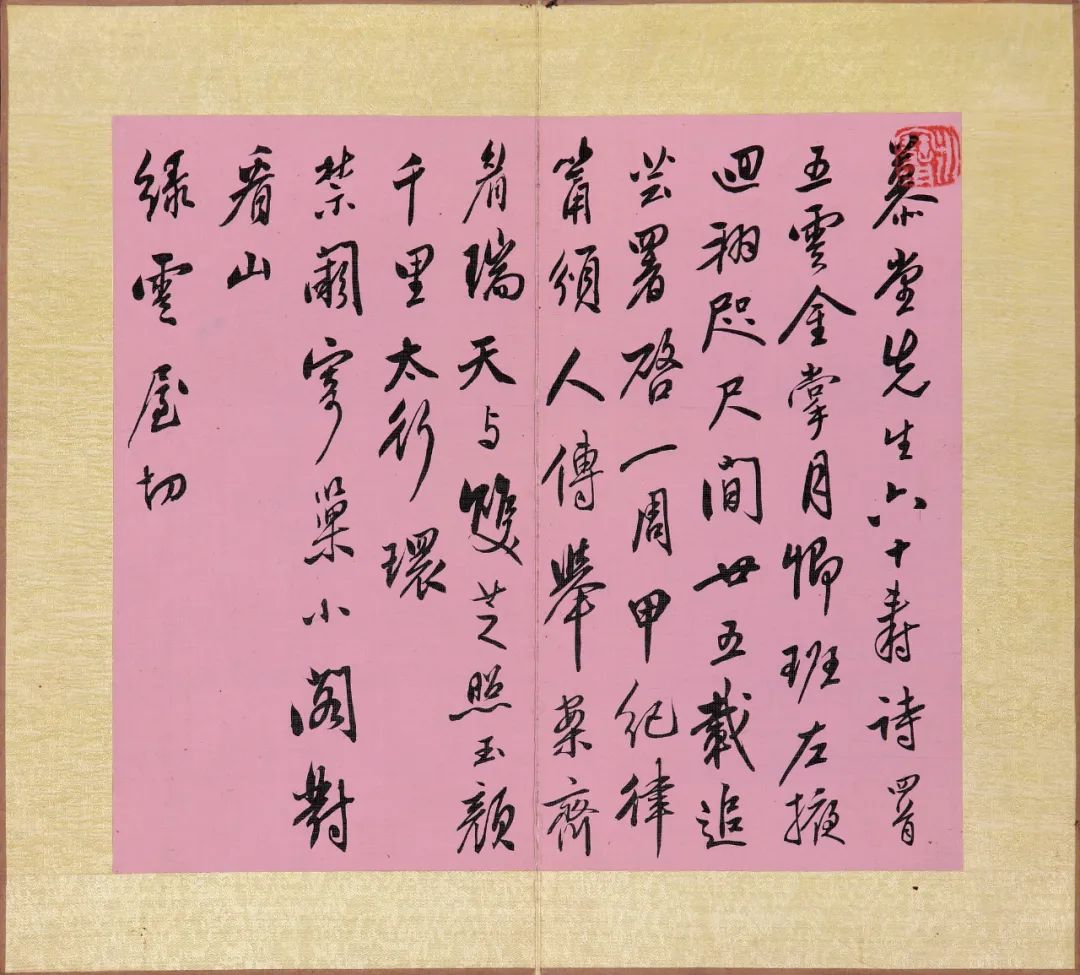 慕堂先生六十壽詩四首
五雲金掌月卿班左掖
迴翔咫尺間廿五載追
芸署啓一周甲紀律
筩頒人傳舉案齊
眉瑞天与雙芝照玉顏
千里太行環
禁闕寄巢小閣對
看山
緑雲屋切